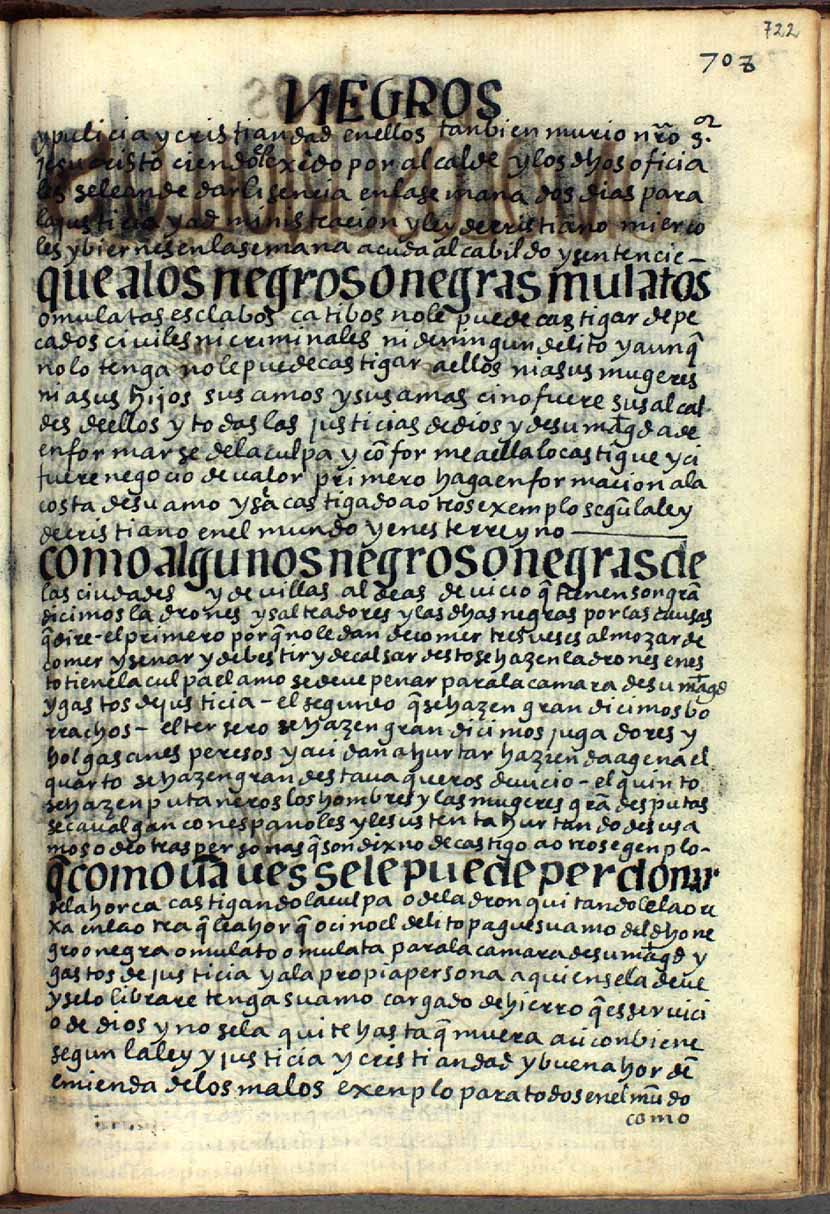 722
708
NEGROS
y pulicia y cristiandad en ellos tanbien murio nr̃o s.or
jesucristo ciendo elexido por alcalde y los dhos oficia
les se le an de dar lisencia en la semana dos dias para
la justicia y ad ministracion y ley de cristiano mierco
les y biernes en la semana acuda al cabildo y sentencie –
que a los negros o negras mulatos
o mulatas esclabos catibos no le puede castigar de pe
cados civiles ni criminales ni de ningun delito y aunq̃
no lo tenga no le puede castigar a ellos ni a sus mugeres
ni a sus hijos sus amos y sus amas ci no fuere sus alcal
des de ellos y todas las justicias de dios y de su mag̃d a de
enformarse de la culpa y cõforme a ella lo castigue y ci
fuere negocio de valor primero haga enformacion a la
costa de su amo y sea castigado a otros exemplo segũ la ley
de cristiano en el mundo y en este rreyno
como algunos negros o negras de
las ciudades y de villas aldeas de vicio q̃ tienen son grã
dicimos ladrones y salteadores y las dhas negras por las causas
q̃ dire – el primero porq̃ no le dan de comer tres veses almozar de
comer y senar y de bestir y de calsar desto se hazen ladrones en es
to tiene la culpa el amo se deve penar para la camara de su mag̃d
y gastos de justicia – el segundo q̃ se hazen grandicimos bo
rrachos – el tersero se hazen grandicimos jugadores y
holgasanes peresos y aci dan a hurtar hazienda agena el
quarto se hazen grandes tavaqueros de vicio – el quinto
se hazen putaneros los hombres y las mugeres grãdes putas
se cavalgan con españoles y le sustenta hurtando de sus a
mos o de otras personas q̃ son dixno de castigo a otros egenplo –
q̃ como ũa ves se le puede perdonar
de la horca castigandola culpa o de ladron quitandole la ore
xa en la otra q̃ le ahorq̃ o ci no el delito pague su amo del dho ne
gro o negra o mulato o mulata para la camara de su mag̃d y
gastos de justicia y a la propia persona a quien se la deve
y se lo librare tenga su amo cargado de hierro q̃ es servici
o de dios y no se la quite hasta q̃ muera aci conbiene
segun la ley y justicia y cristiandad y buena horden
emienda de los malos exenplo para todos en el mũdo
como